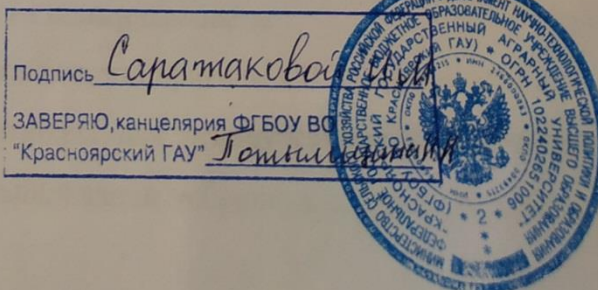 Подпись Саратаковой И.М
ЗАВЕРЯЮ, канцелярия ФГБОУ ВО
"Красноярский ГАУ"
МИНИСТЕРСТВО СЕЛЬСКОГО ХОЗЯЙСТВА РОССИЙСКОЙ ФЕДЕРАЦИИ ДЕПАРТАМЕНТ НАУЧНО-ТЕХНОЛОГИЧЕСКОЙ ПОЛИТИКИ И ОБРАЗОВАНИЯ
ФЕДЕРАЛЬНОЕ ГОСУДАРСТВЕННОЕ БЮДЖЕТНОЕ ОБРАЗОВАТЕЛЬНОЕ УЧРЕЖДЕНИЕ ВЫСШЕГО ОБРАЗОВАНИЯ
"КРАСНОЯРСКИЙ ГОСУДАРСТВЕННЫЙ АГРАРНЫЙ УНИВЕРСИТЕТ"
(ФГБОУ КРАСНОЯРСКИЙ ГАУ) * ОГРН 1022402651006
* 2 *